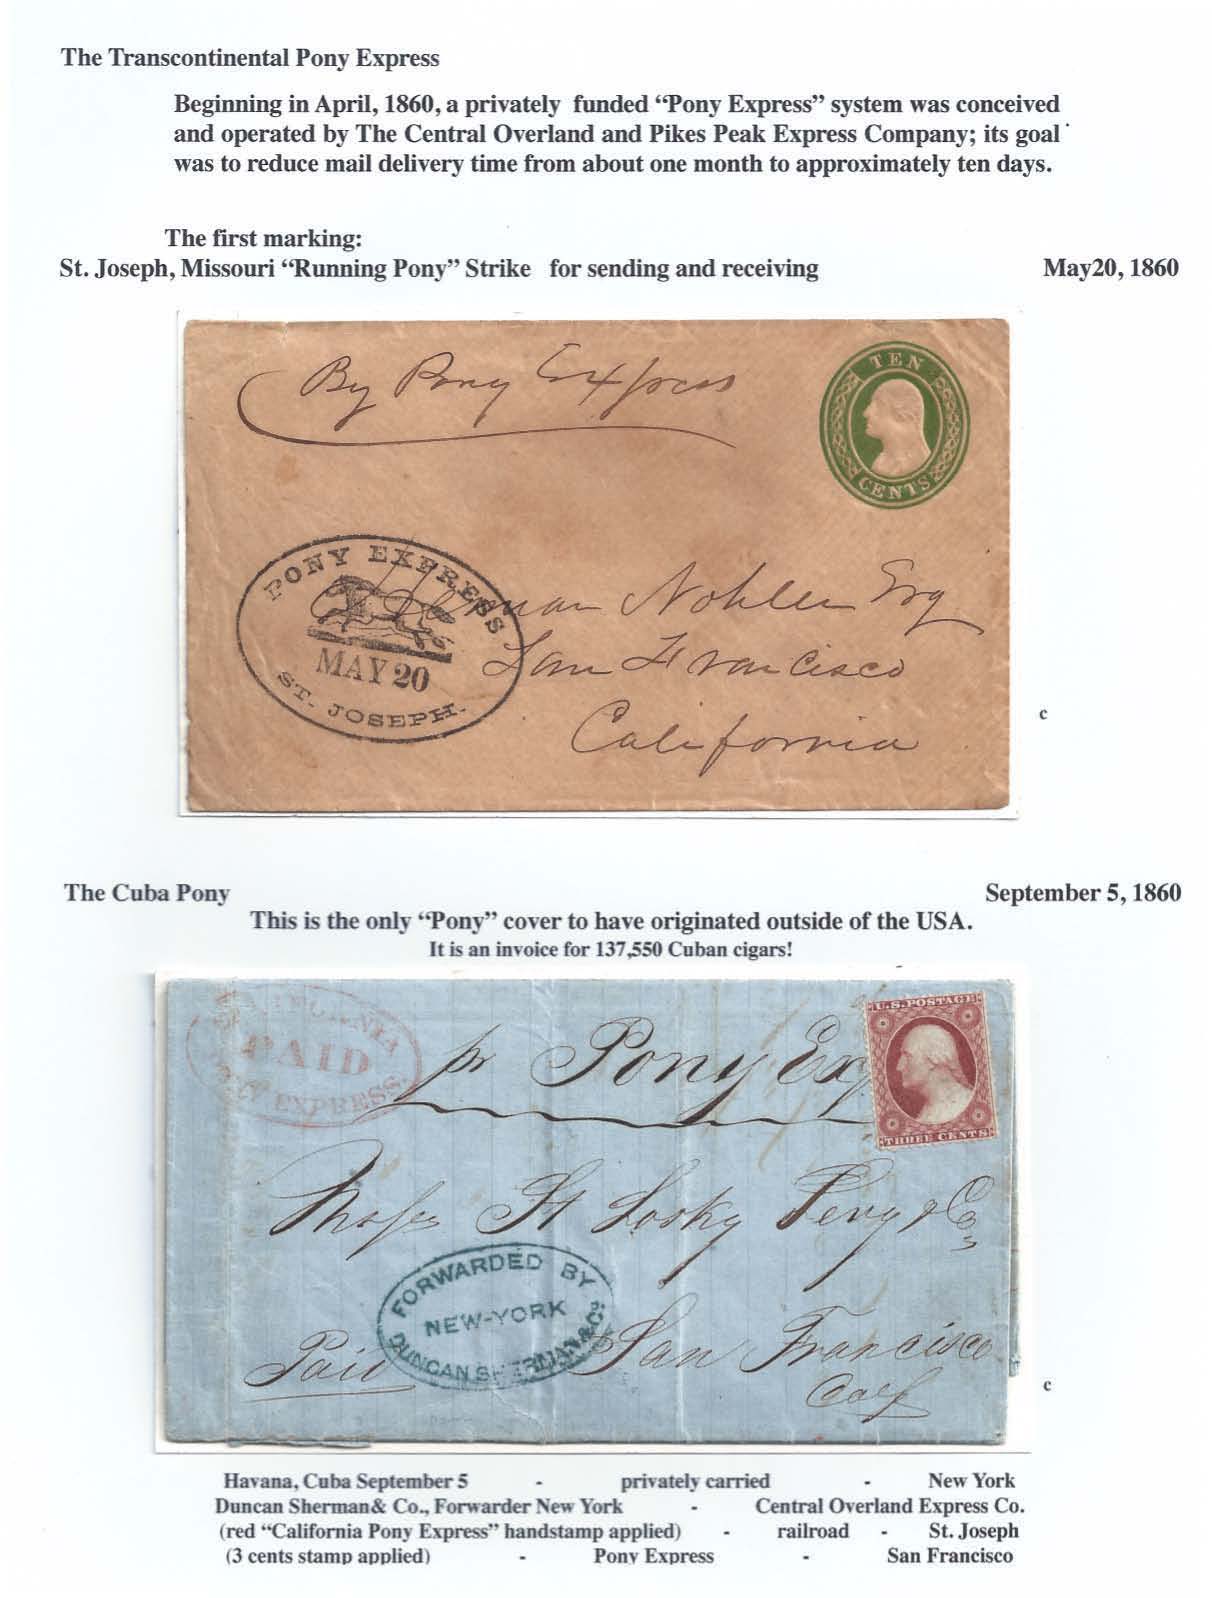 The Transcontinental Pony Express
Beginning in April, 1860, a privately funded “Pony Express” system was conceived
and operated by The Central Overland and Pikes Peak Express Company; its goal
was to reduce mail delivery time from about one month to approximately ten days.
The first marking:
St. Joseph, Missouri “Running Pony” Strike for sending and receiving May20, 1860
By Pony Express
TEN
CENTS
PONY EXPRESS
MAY 20
ST. JOSEPH.
Herman Nohlen Esq
San Francisco
California
c
The Cuba Pony September 5, 1860
This is the only “Pony” cover to have originated outside of the USA.
It is an invoice for 137,550 Cuban cigars!
U.S. POSTAGE
THREE CENTS
PAID
EXPRESS.
pr Pony Ex
& Co
FORWARDED BY
NEW-YORK
DUNCAN SHERMAN & Co.
Paid
San Francisco
Calf
c
Havana, Cuba September 5 - privately carried - New York
Duncan Sherman& Co., Forwarder New York - Central Overland Express Co.
(red “California Pony Express” handstamp applied) - railroad - St. Joseph
(3 cents stamp applied) - Pony Express - San Francisco